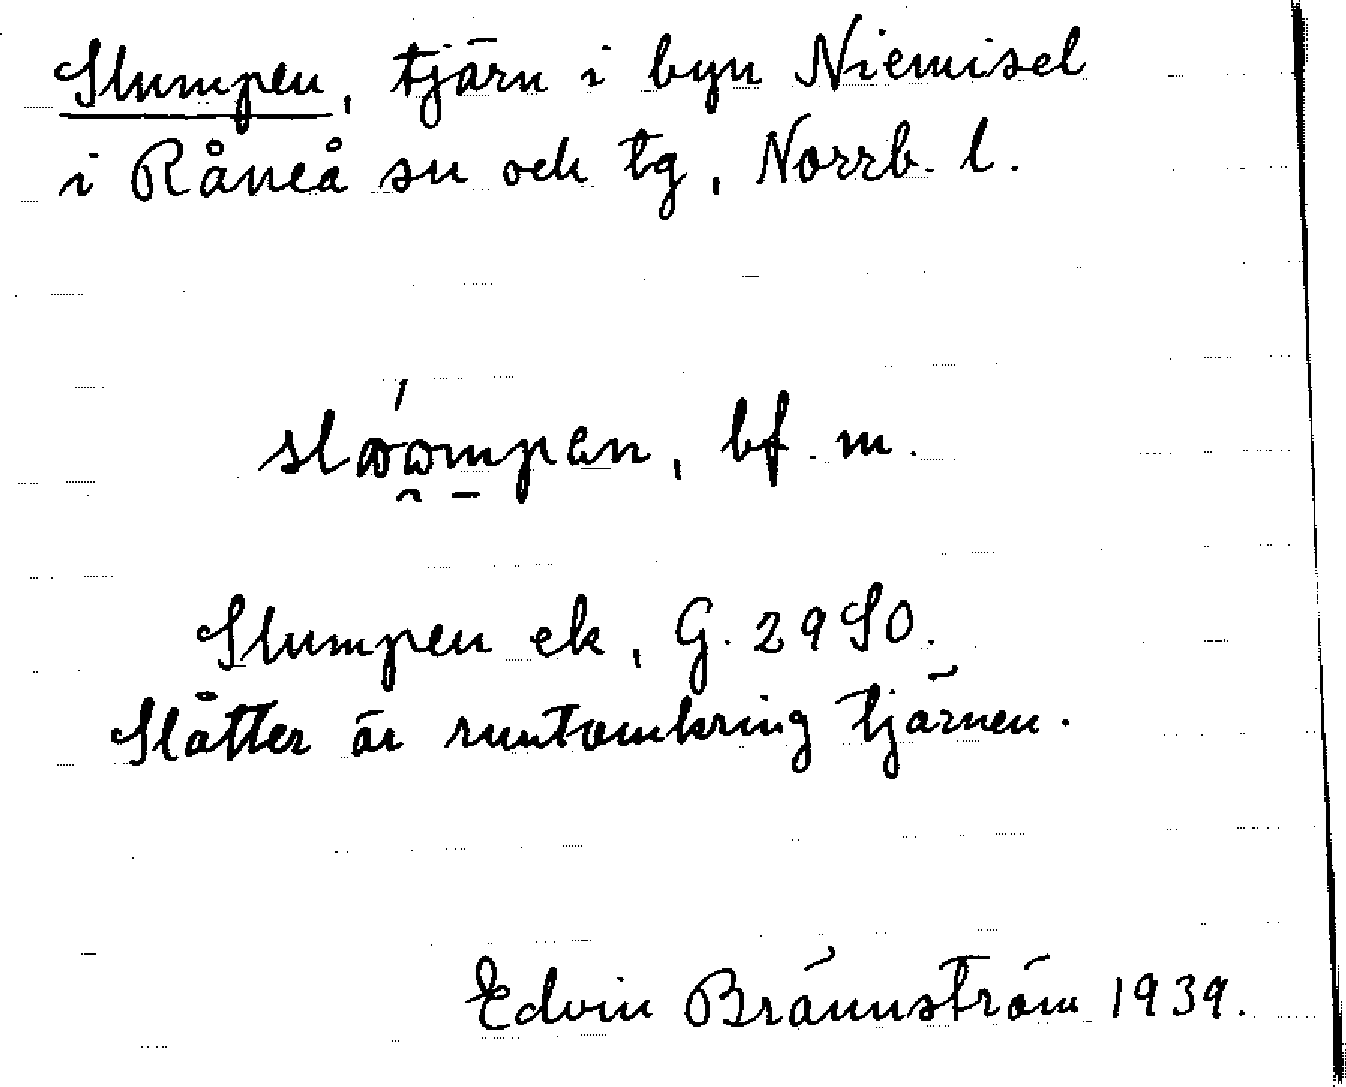 Slumpen, tjärn i byn Niemisel
i Råneå sn och tg, Norrb. l.
bf. m.
Slumpen ek, G. 29 SO.
Slåtter är runtomkring tjärnen.
Edvin Brännström 1939.